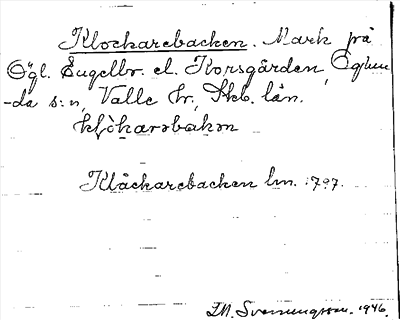 Klockarebacken. Mark på
Ögl. Engelbr. el. Korsgården, Öglun
-da s:n, Valle hr, Skb. län.
Klåckarebacken lm. 1797.
Svenningsson. 1946.